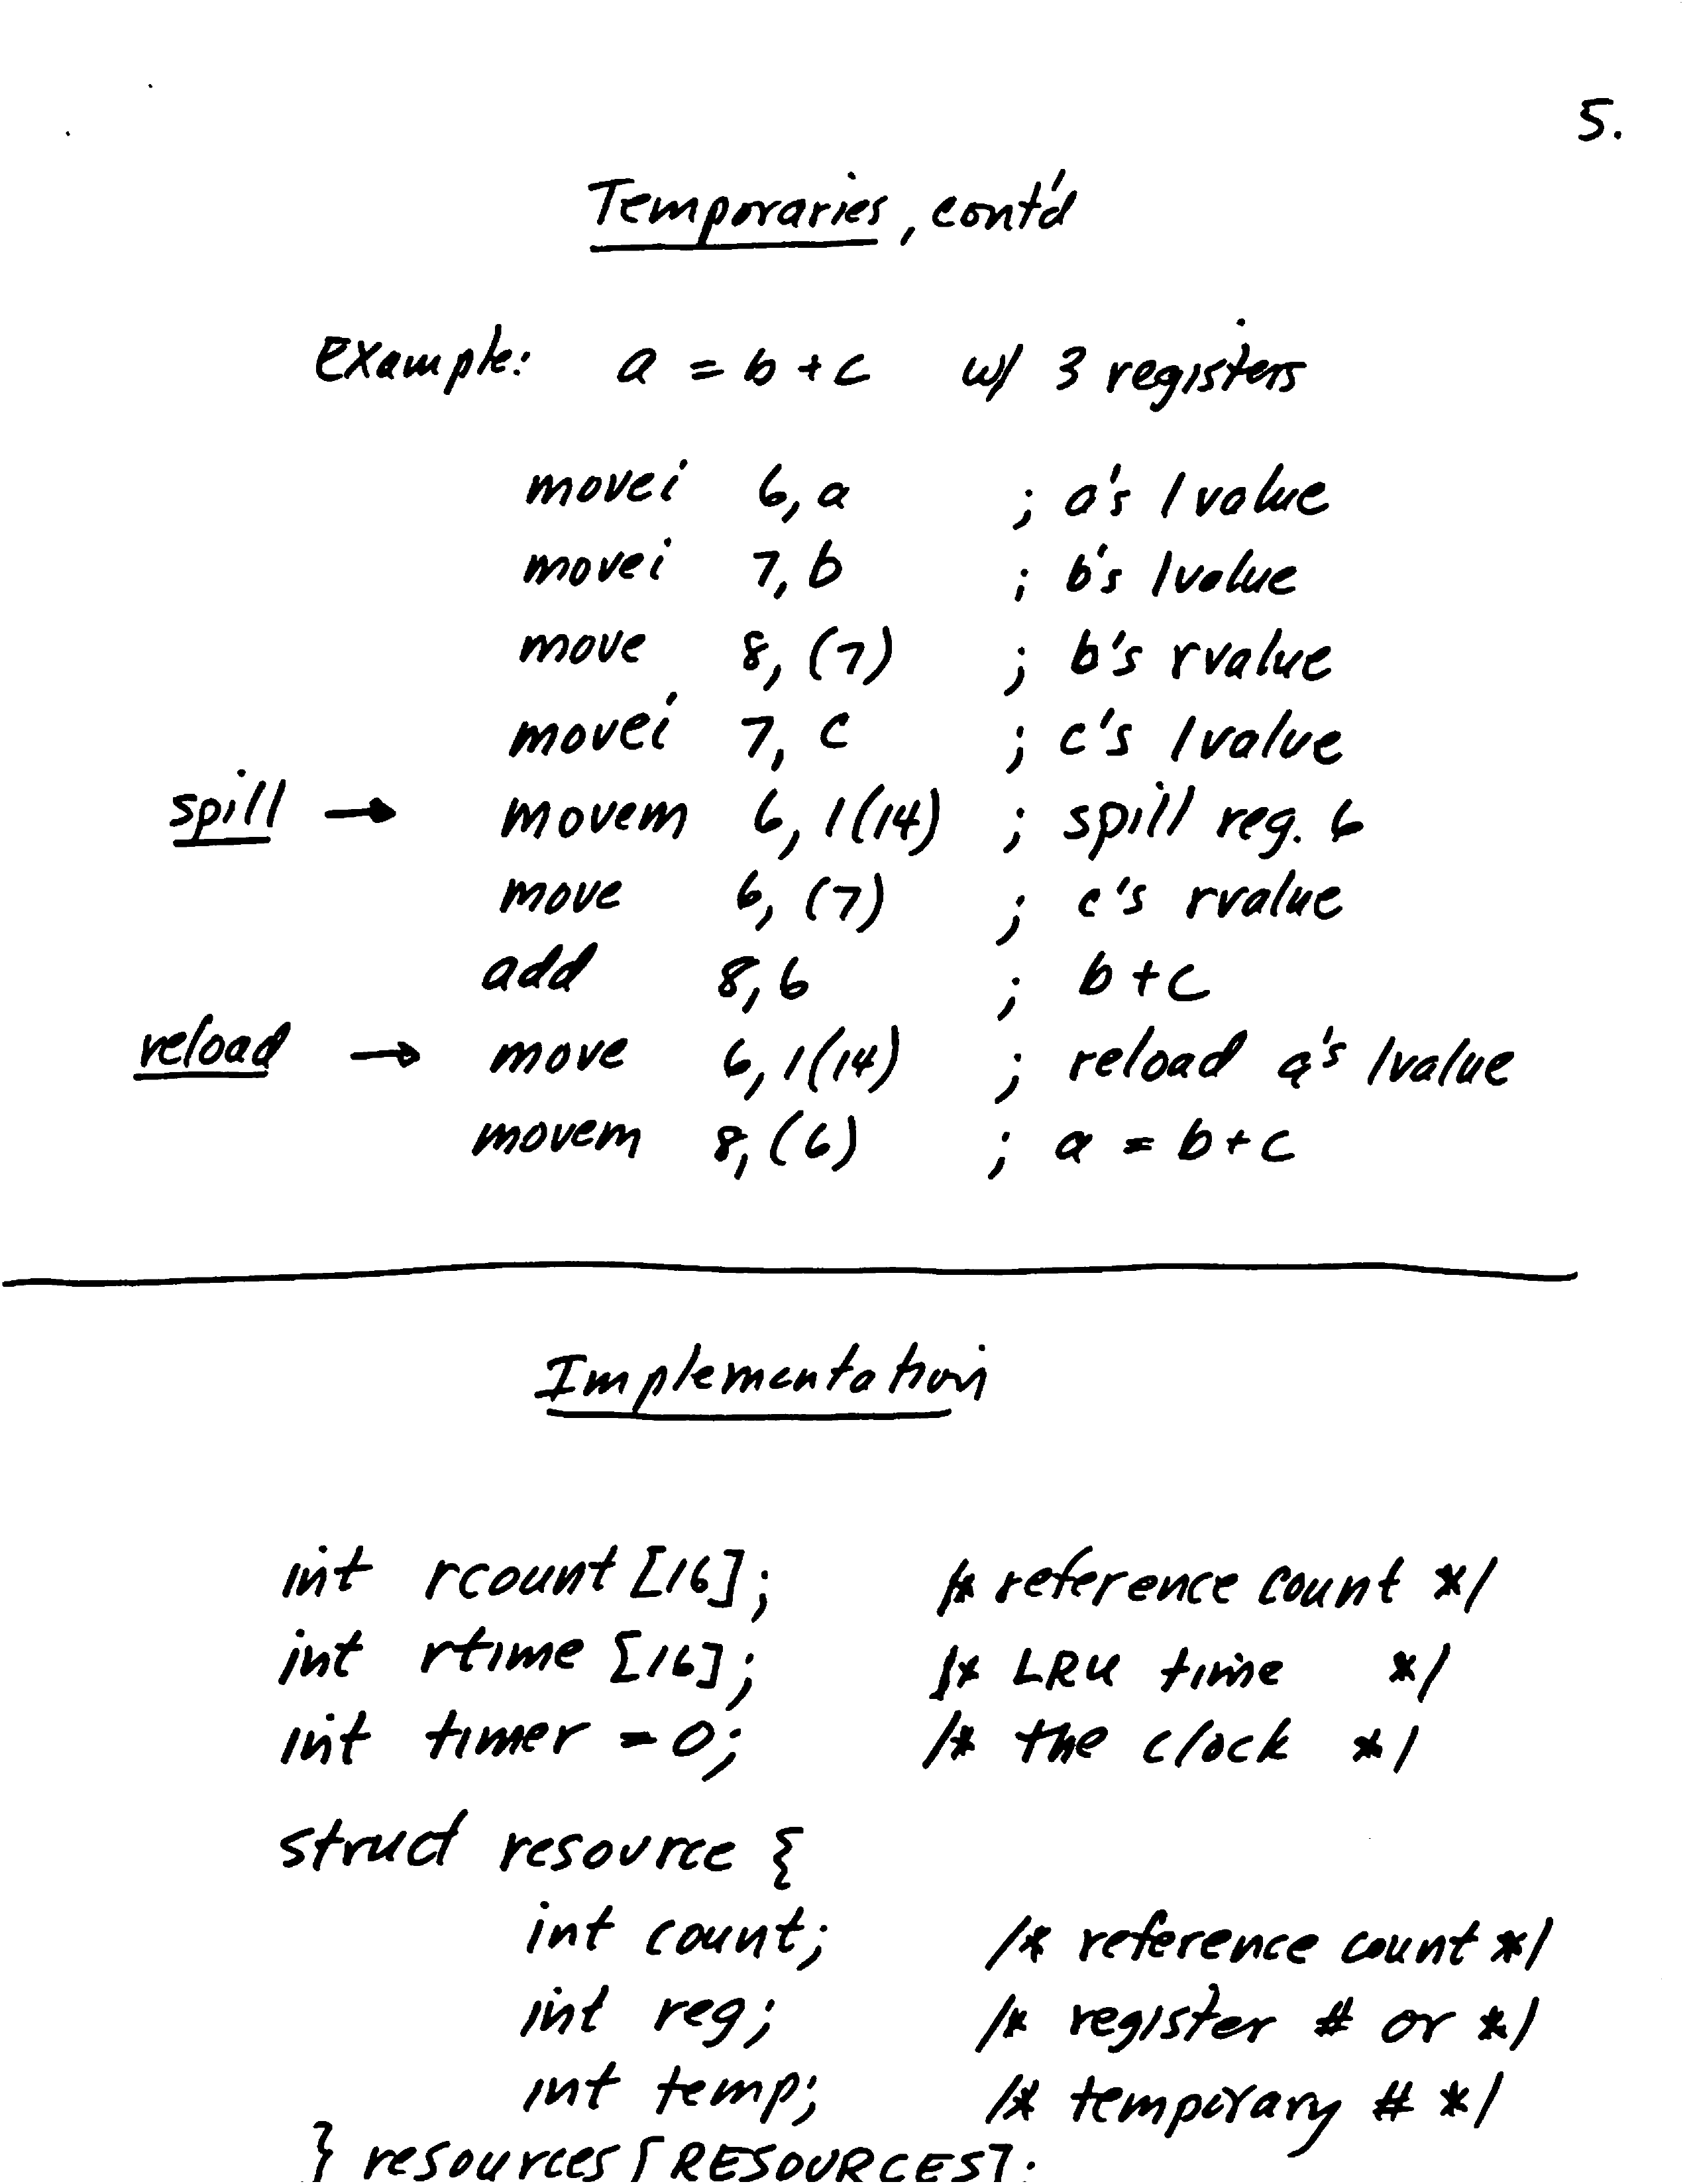 5.
Temporaries, cont'd
Example: a = b + c w/ 3 registers
movei 6, a ; a's lvalue
movei 7, b ; b's lvalue
move 8, (7) ; b's rvalue
movei 7, c ; c's lvalue
spill → movem 6, 1(14) ; spill reg. 6
move 6, (7) ; c's rvalue
add 8, 6 ; b + c
reload → move 6, 1(14) ; reload a's lvalue
movem 8, (6) ; a = b + c
Implementation
int rcount [16]; /* reference count */
int rtime [16]; /* LRU time */
int timer = 0; /* the clock */
struct resource {
int count; /* reference count */
int reg; /* register # or */
int temp; /* temporary # */
} resources [RESOURCES];